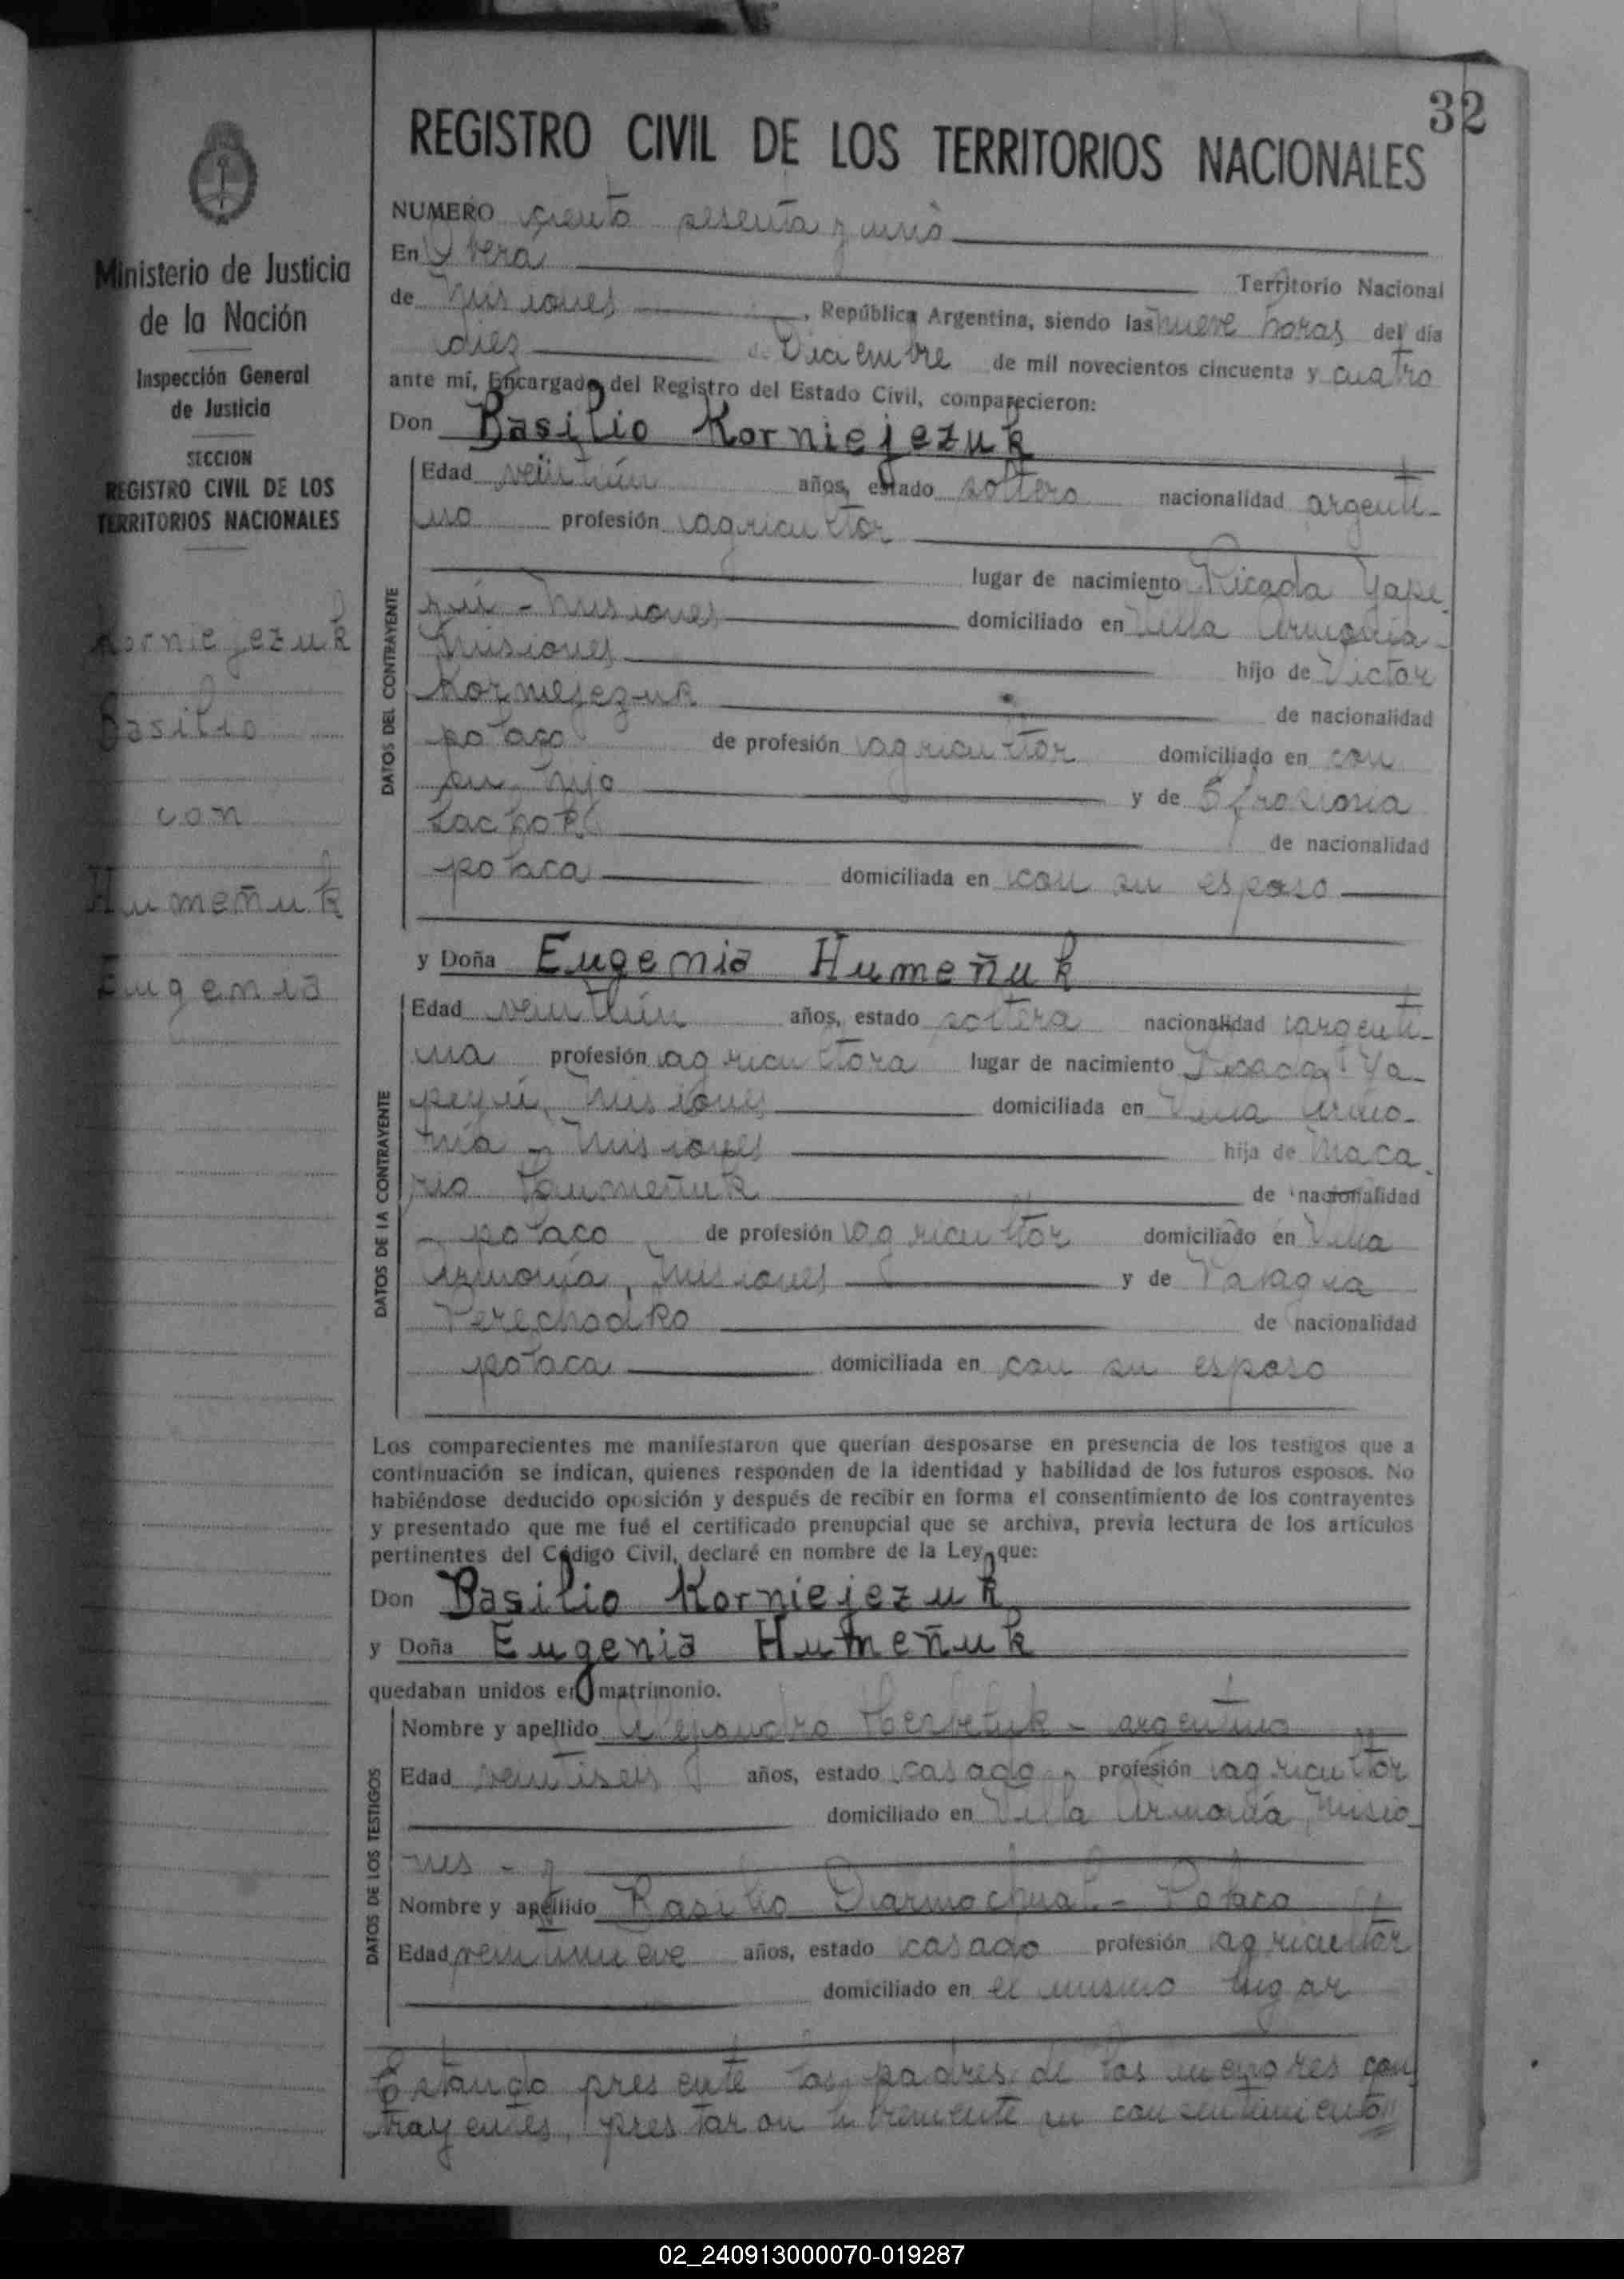 32
REGISTRO CIVIL DE LOS TERRITORIOS NACIONALES
Ministerio de Justicia
de la Nación
Inspección General
de Justicia
SECCION
REGISTRO CIVIL DE LOS
TERRITORIOS NACIONALES
Korniejezuk
Basilio
con
Humeñuk
Eugenia
NUMERO ciento sesenta y uno
En Yberá Territorio Nacional
de Misiones, República Argentina, siendo las nueve horas del día
diez de Diciembre de mil novecientos cincuenta y cuatro
ante mí, Encargado del Registro del Estado Civil, comparecieron:
Don Basilio Korniejezuk
DATOS DEL CONTRAYENTE
Edad veintiún años, estado soltero nacionalidad argenti-
no profesión agricultor
lugar de nacimiento Picada Yape
yú - Misiones domiciliado en Villa Armonía -
Misiones hijo de Victor
Korniejezuk de nacionalidad
polaco de profesión agricultor domiciliado en con
su hijo y de
de nacionalidad
polaca domiciliada en con su esposo
y Doña Eugenia Humeñuk
DATOS DE LA CONTRAYENTE
Edad veintiún años, estado soltera nacionalidad argenti-
na profesión agricultora lugar de nacimiento Picada Ya-
peyú, Misiones domiciliada en Villa Armo-
nía - Misiones hija de Maca-
rio Humeñuk de nacionalidad
polaco de profesión agricultor domiciliado en Villa
Armonía, Misiones y de
Perechodko de nacionalidad
polaca domiciliada en con su esposo
Los comparecientes me manifestaron que querían desposarse en presencia de los testigos que a
continuación se indican, quienes responden de la identidad y habilidad de los futuros esposos. No
habiéndose deducido oposición y después de recibir en forma el consentimiento de los contrayentes
y presentado que me fué el certificado prenupcial que se archiva, previa lectura de los artículos
pertinentes del Código Civil, declaré en nombre de la Ley que:
Don Basilio Korniejezuk
y Doña Eugenia Humeñuk
quedaban unidos en matrimonio.
DATOS DE LOS TESTIGOS
Nombre y apellido Alejandro - argentino
Edad veintiseis años, estado casado profesión agricultor
domiciliado en Villa Armonía, Misio-
nes - y
Nombre y apellido Basilio - Polaco
Edad veintinueve años, estado casado profesión agricultor
domiciliado en el mismo lugar
Estando presente los padres de los menores con
trayentes, prestaron libremente su consentimiento
02_240913000070-019287